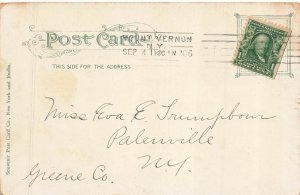 Post Card
MOUNT VERNON
N.Y.
SEP 4
THIS SIDE FOR THE ADDRESS
Miss Eva E. Trumpbour
Palenville
Greene Co. N.Y.
Souvenir Post Card Co., New York and Berlin.